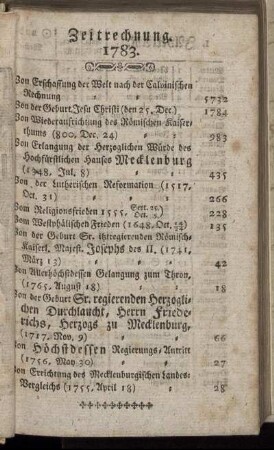 Zeitrechnung.
1783.
Von Erschaffung der Welt nach der Calvinischen
Rechnung 5732
Von der Geburt Jesu Christi (den 25. Dec.) 1784
Von Wiederaufrichtung des Römischen Kaiser-
thums (800, Dec. 24) 983
Von Erlangung der Herzoglichen Würde des
Hochfürstlichen Hauses Mecklenburg
(1348, Jul. 8) 435
Von der Lutherischen Reformation (1517,
Oct. 31) 266
Vom Religionsfrieden 1555. 228
Vom Westphälischen Frieden (1648, Oct. 135
Von der Geburt Sr. ihtregierenden Römisch-
Kaiserl. Majest. Josephs des II. (1741,
März 13) 42
Von Allerhöchstdessen Gelangung zum Thron,
(1765. August 18) 18
Von der Geburt Sr. regierenden Herzogli-
chen Durchlaucht, Herrn Friede-
richs, Herzogs zu Mecklenburg,
(1717, Nov. 9) 66
Von Höchstdessen Regierungs-Antritt
(1756, May 30) 27
Von Errichtung des Mecklenburgischen Landes-
Vergleichs (1755, April 18) 28